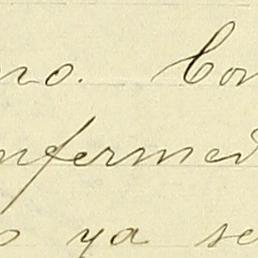 no. Con
nfermed
s ya se